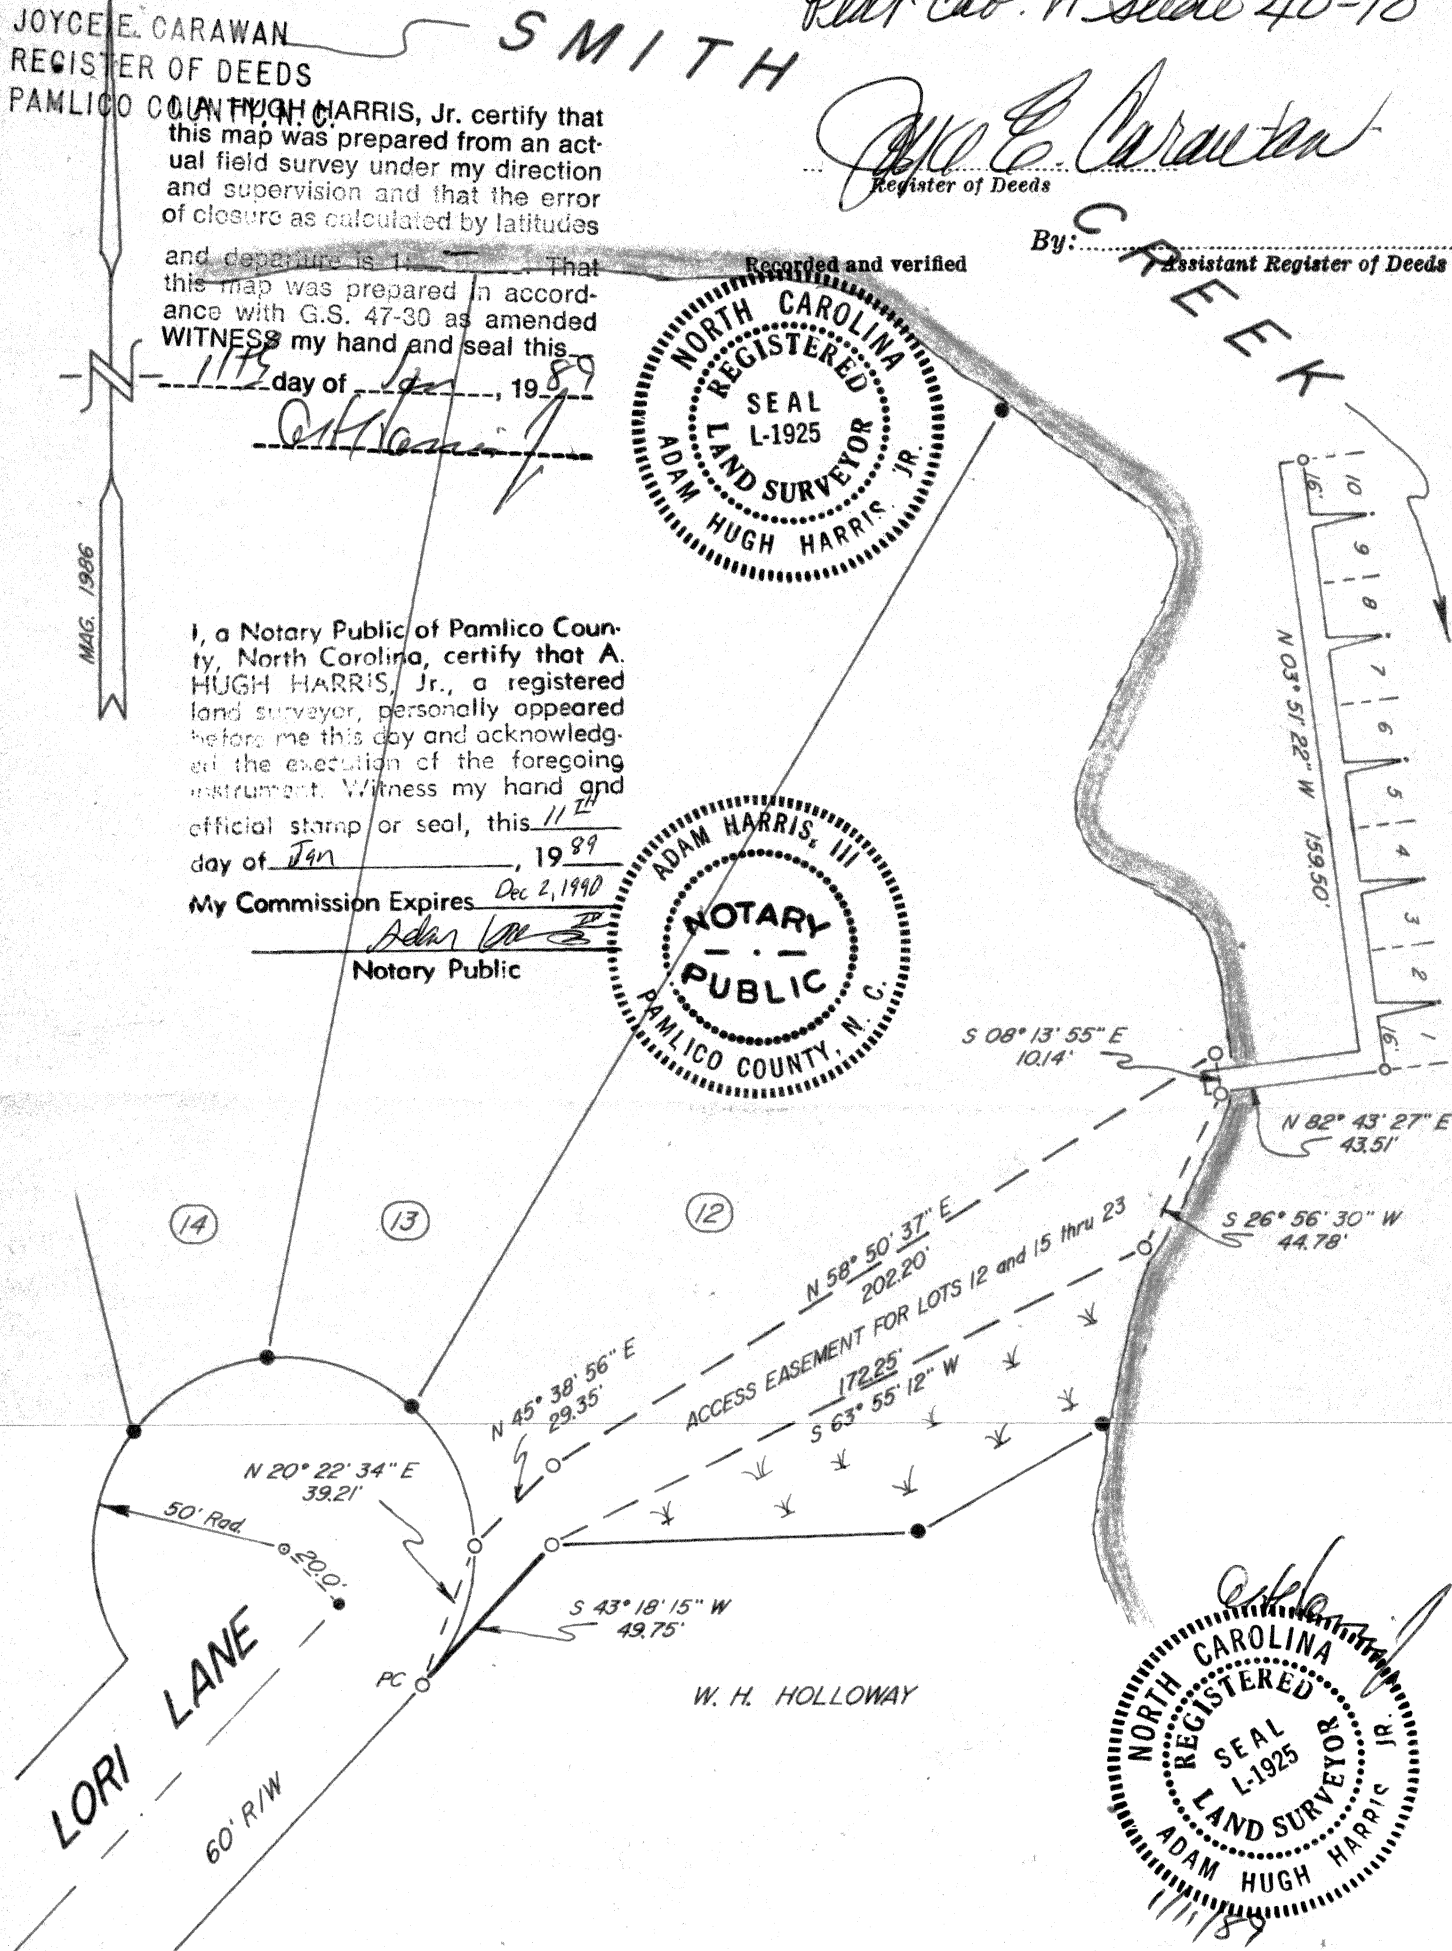 JOYCE E. CARAWAN
REGISTER OF DEEDS
PAMLICO COUNTY, N.C.
SMITH
Plat Cab. A Slide 40-10
I, A. HUGH HARRIS, Jr. certify that
this map was prepared from an act-
ual field survey under my direction
and supervision and that the error
of closure as calculated by latitudes
and departure is 1: — . That
this map was prepared in accord-
ance with G.S. 47-30 as amended
WITNESS my hand and seal this
11th day of Jan, 1989
Joyce E. Carawan
Register of Deeds
By:
Assistant Register of Deeds
Recorded and verified
CREEK
NORTH CAROLINA
REGISTERED
SEAL
L-1925
LAND SURVEYOR
ADAM HUGH HARRIS, JR.
N
MAG. 1986
I, a Notary Public of Pamlico Coun-
ty, North Carolina, certify that A.
HUGH HARRIS, Jr., a registered
land surveyor, personally appeared
before me this day and acknowledg-
ed the execution of the foregoing
instrument. Witness my hand and
official stamp or seal, this 11TH
day of Jan, 1989
My Commission Expires Dec 2, 1990
Notary Public
ADAM HARRIS, III
NOTARY
PUBLIC
PAMLICO COUNTY, N. C.
16'
10
9
8
7
6
5
4
3
2
1
16'
N 03° 51' 22" W 159.50'
S 08° 13' 55" E
10.14'
N 82° 43' 27" E
43.51'
S 26° 56' 30" W
44.78'
14
13
12
N 58° 50' 37" E
202.20'
ACCESS EASEMENT FOR LOTS 12 and 15 thru 23
172.25'
S 63° 55' 12" W
N 45° 38' 56" E
29.35'
N 20° 22' 34" E
39.21'
50' Rad.
20.0'
S 43° 18' 15" W
49.75'
PC
W. H. HOLLOWAY
LORI LANE
60' R/W
NORTH CAROLINA
REGISTERED
SEAL
L-1925
LAND SURVEYOR
ADAM HUGH HARRIS JR.
1/11/89